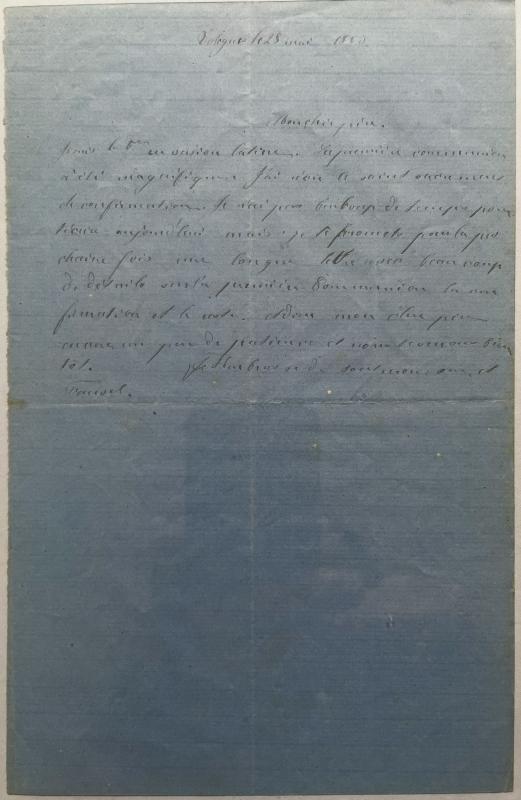 le 28 mai 1880
Mon cher père.
en version latine. La première communion
a été magnifique. J'ai reçu le saint sacrement
de confirmation. Je n'ai pas beaucoup de temps pour
aujourd'hui mais je te promets pour la pro
chaine fois une longue lettre avec beaucoup
de details sur la première Communion la con
firmation et le reste. Adieu mon cher père
encore un peu de patience et nous te verrons bien
tot. Je t'embrasse de tout mon cœur et